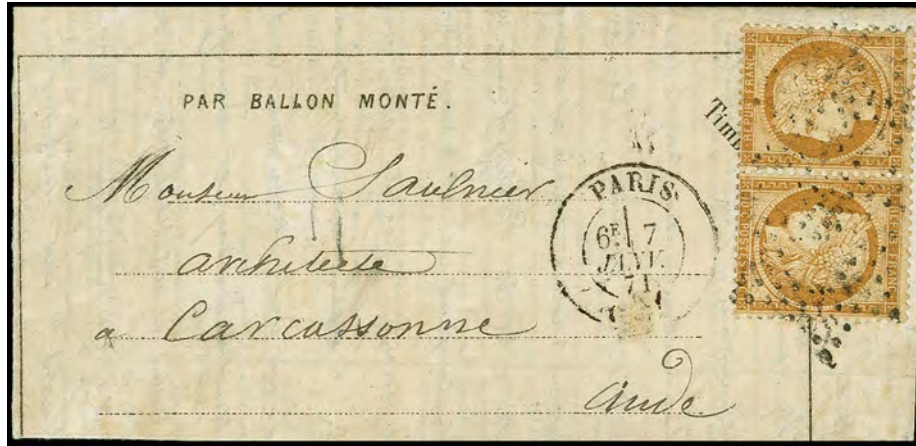 PAR BALLON MONTÉ.
Timb
Monsieur Saulnier
architecte
a Carcassonne
aude
PARIS
6E 7
JANV.
71
REPUB. FRANC.